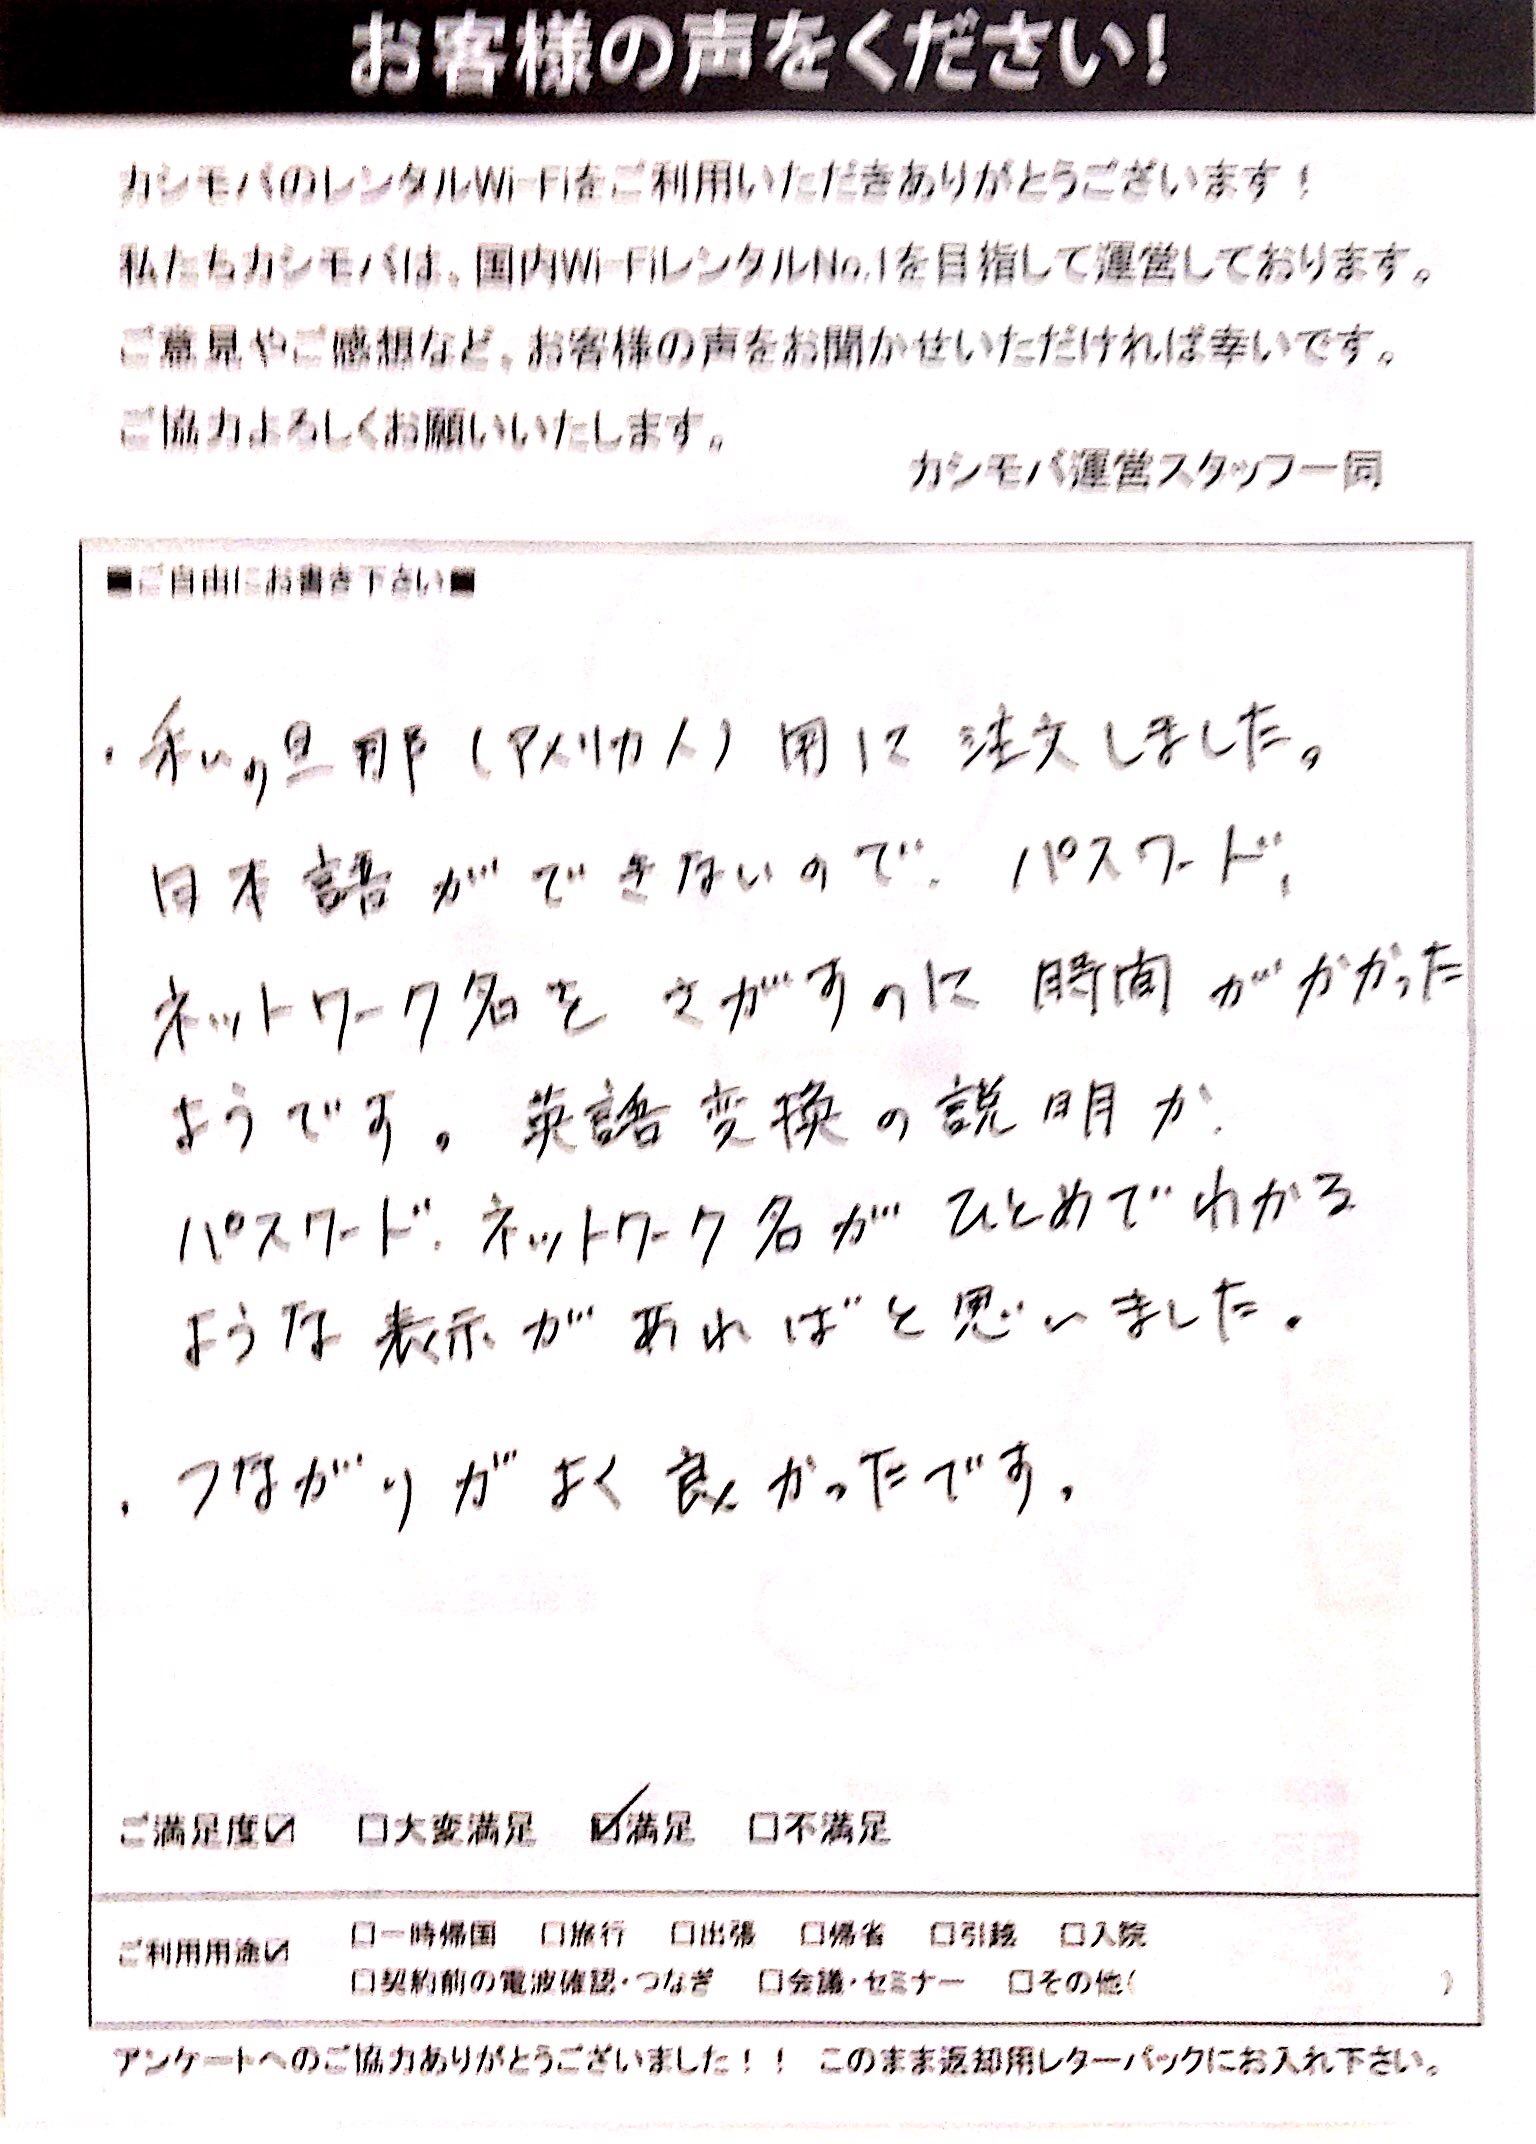 お客様の声をください!
カシモバのレンタルWi-Fiをご利用いただきありがとうございます!
私たちカシモバは、国内Wi-FiレンタルNo.1を目指して運営しております。
ご意見やご感想など、お客様の声をお聞かせいただければ幸いです。
ご協力よろしくお願いいたします。
カシモバ運営スタッフ一同
■ご自由にお書き下さい■
・私の旦那(アメリカ人)用に注文しました。
日本語ができないので、パスワード、
ネットワーク名をさがすのに時間がかかった
ようです。英語変換の説明か、
パスワード、ネットワーク名がひとめでわかる
ような表示があればと思いました。
・つながりがよく良かったです。
ご満足度☑ □大変満足 ☑満足 □不満足
ご利用用途☑ □一時帰国 □旅行 □出張 □帰省 □引越 □入院
□契約前の電波確認・つなぎ □会議・セミナー □その他( )
アンケートへのご協力ありがとうございました!! このまま返却用レターパックにお入れ下さい。